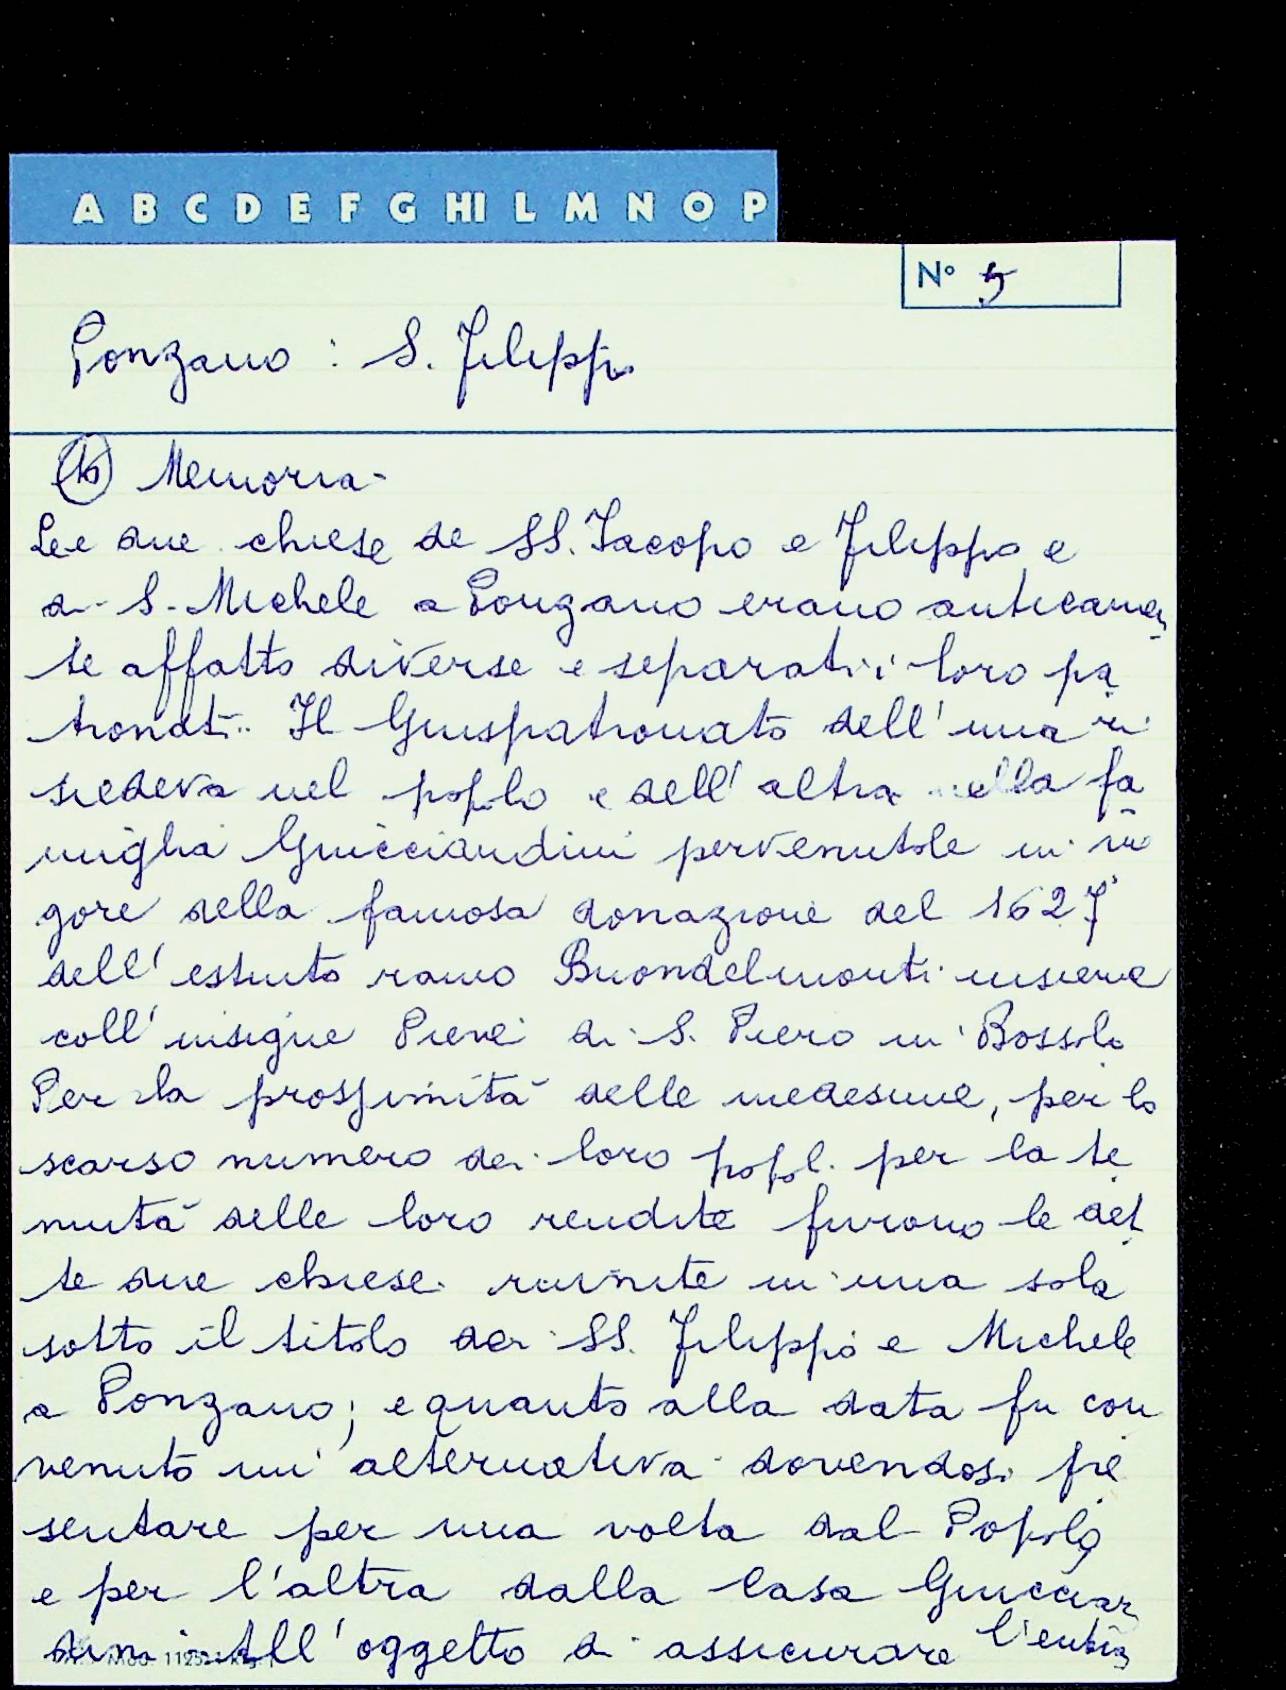 A B C D E F G HI L M N O P
N° 5
Ponzano : S. Filippo
Memoria -
Le due chiese de SS. Iacopo e Filippo e
di S. Michele a Ponzano erano anticamen
te affatto diverse e separati i loro pa
tronati. Il Giuspatronato dell'una ri
siedeva nel popolo e dell'altra nella fa
miglia Guicciardini pervenutole in vi
gore della famosa donazione del 1627
dell'estinto ramo Buondelmonti insieme
coll'insigne Pieve di S. Piero in Bossolo
Per la prossimità delle medesime, per lo
scarso numero dei loro popol. per la te
nuità delle loro rendite furono le det
te due chiese riunite in una sola
sotto il titolo dei SS. Filippo e Michele
a Ponzano; e quanto alla data fu con
venuto un'alternativa dovendosi pre
sentare per una volta dal Popolo
e per l'altra dalla Casa Guicciar
dini. All'oggetto di assicurare